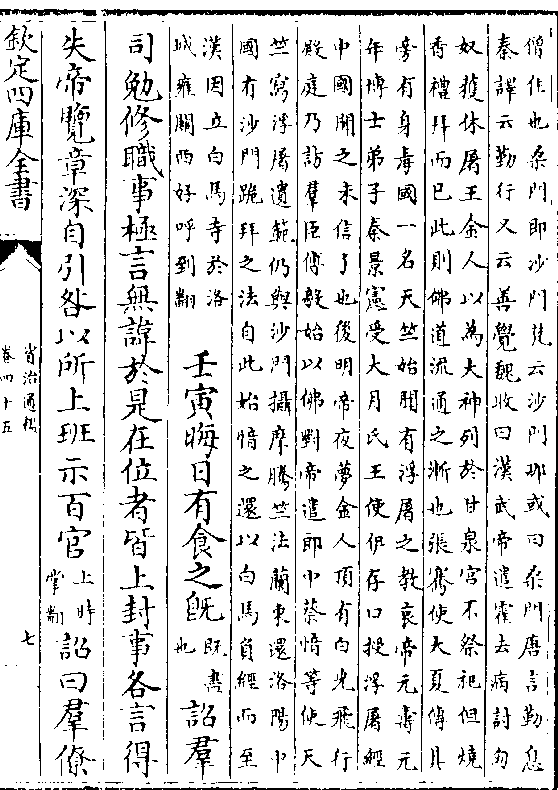 僧作也桑門即沙門梵云沙門那或曰桑門唐言勤息
秦譯云勤行又云善覺魏收曰漢武帝遣霍去病討匈
奴獲休屠王金人以為大神列於甘泉宫不祭祀但燒
香禮拜而已此則佛道流通之漸也張騫使大夏傳其
旁有身毒國一名天竺始聞有浮屠之教哀帝元壽元
年博士弟子秦景憲受大月氏王使伊存口授浮屠經
中國聞之未信了也後明帝夜夢金人頂有白光飛行
殿庭乃訪羣臣傅毅始以佛對帝遣郎中蔡愔等使天
竺寫浮屠遺範仍與沙門攝摩騰竺法蘭東還洛陽中
國有沙門跪拜之法自此始愔之還以白馬負經而至
漢因立白馬寺於洛
城雍關西好呼到翻
壬寅晦日有食之旣
旣盡
也
詔羣
司勉修職事極言無諱於是在位者皆上封事各言得
失帝覽章深自引咎以所上班示百官
上時
掌翻
詔曰羣僚
欽定四庫全書
資治通鑑
卷四十五
七